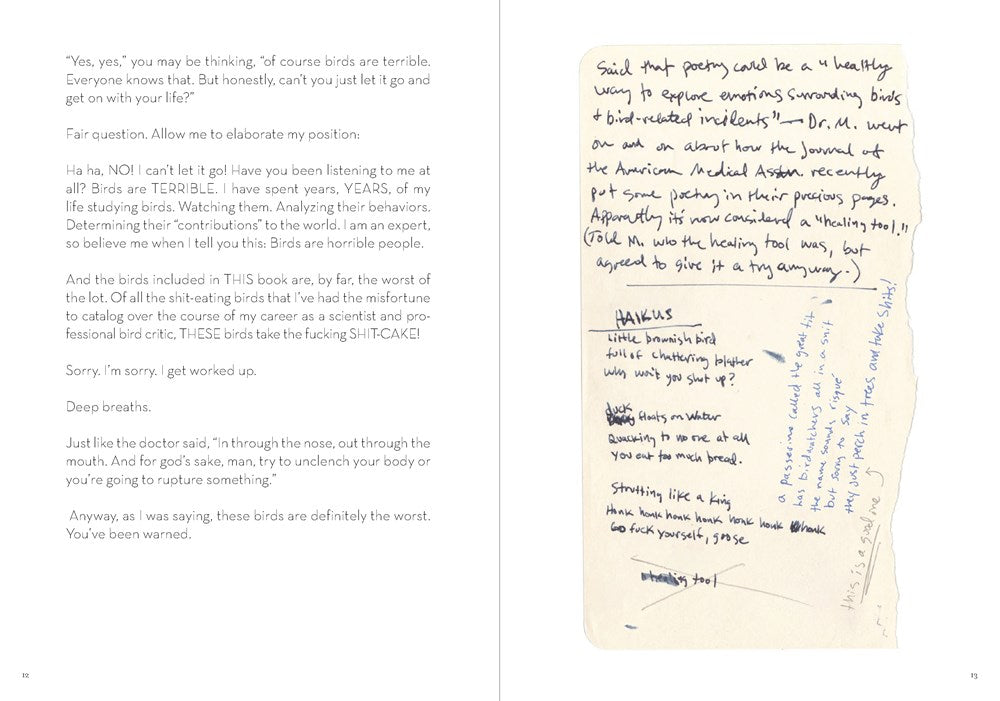 “Yes, yes,” you may be thinking, “of course birds are terrible.
Everyone knows that. But honestly, can’t you just let it go and
get on with your life?”
Fair question. Allow me to elaborate my position:
Ha ha, NO! I can’t let it go! Have you been listening to me at
all? Birds are TERRIBLE. I have spent years, YEARS, of my
life studying birds. Watching them. Analyzing their behaviors.
Determining their “contributions” to the world. I am an expert,
so believe me when I tell you this: Birds are horrible people.
And the birds included in THIS book are, by far, the worst of
the lot. Of all the shit-eating birds that I’ve had the misfortune
to catalog over the course of my career as a scientist and pro-
fessional bird critic, THESE birds take the fucking SHIT-CAKE!
Sorry. I’m sorry. I get worked up.
Deep breaths.
Just like the doctor said, “In through the nose, out through the
mouth. And for god’s sake, man, try to unclench your body or
you’re going to rupture something.”
Anyway, as I was saying, these birds are definitely the worst.
You’ve been warned.
12
Said that poetry could be a “healthy
way to explore emotions surrounding birds
+ bird-related incidents” — Dr. M. went
on and on about how the Journal of
the American Medical Assn. recently
put some poetry in their precious pages.
Apparently it's now considered a “healing tool.”
(Told M. who the healing tool was, but
agreed to give it a try anyway.)
HAIKUS
Little brownish bird
full of chattering blather
why won't you shut up?
duck floats on water
Quacking to no one at all
you eat too much bread.
Strutting like a king
Honk honk honk honk honk honk honk
Go fuck yourself, goose
healing tool
a passerine called the great tit
has birdwatchers all in a snit
the name sounds risqué
but sorry to say
they just perch in trees and take shits!
this is a good one
13